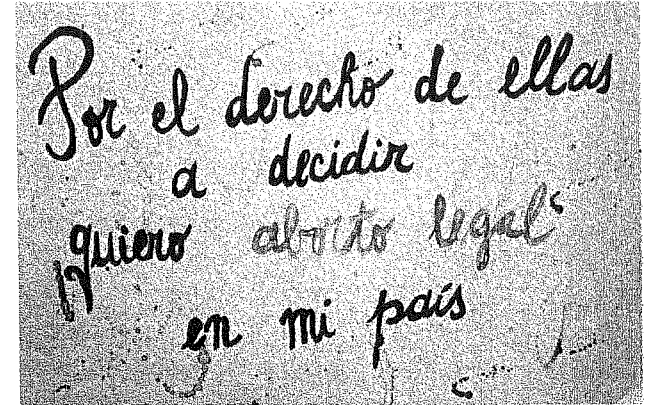 Por el derecho de ellas
a decidir
¡quiero aborto legal
en mi país